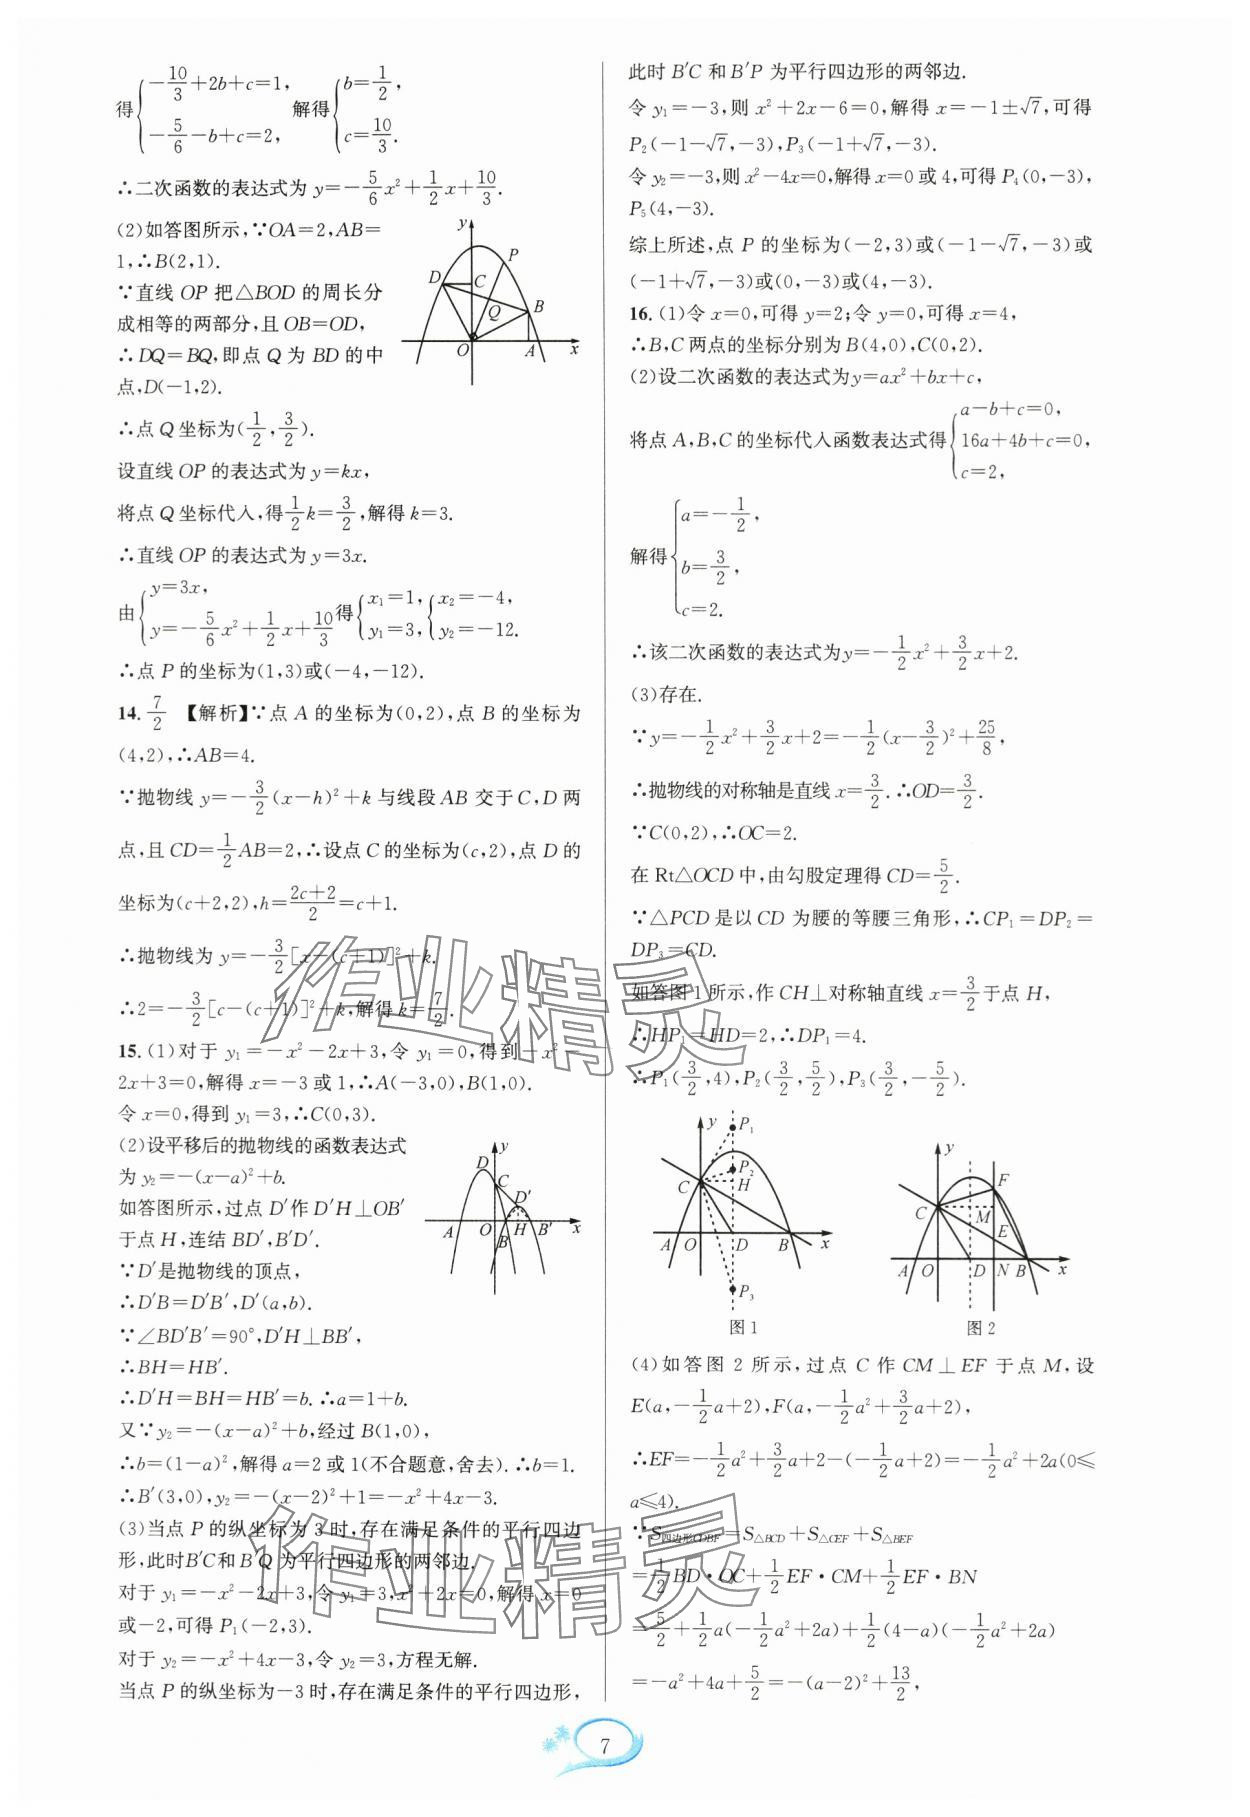 得{−10/3+2b+c=1, −5/6−b+c=2, 解得{b=1/2, c=10/3.
∴二次函数的表达式为 y=−5/6x²+1/2x+10/3.
(2)如答图所示,∵OA=2,AB=
1,∴B(2,1).
∵直线 OP 把△BOD 的周长分
成相等的两部分,且 OB=OD,
∴DQ=BQ,即点 Q 为 BD 的中
点,D(−1,2).
∴点 Q 坐标为(1/2,3/2).
设直线 OP 的表达式为 y=kx,
将点 Q 坐标代入,得1/2k=3/2,解得 k=3.
∴直线 OP 的表达式为 y=3x.
由{y=3x, y=−5/6x²+1/2x+10/3得{x₁=1, y₁=3, {x₂=−4, y₂=−12.
∴点 P 的坐标为(1,3)或(−4,−12).
y
P
D
C
B
Q
O
A
x
14. 7/2 【解析】∵点 A 的坐标为(0,2),点 B 的坐标为
(4,2),∴AB=4.
∵抛物线 y=−3/2(x−h)²+k 与线段 AB 交于 C,D 两
点,且 CD=1/2AB=2,∴设点 C 的坐标为(c,2),点 D 的
坐标为(c+2,2),h=2c+2/2=c+1.
∴抛物线为 y=−3/2[x−(c+1)]²+k.
∴2=−3/2[c−(c+1)]²+k,解得 k=7/2.
15. (1)对于 y₁=−x²−2x+3,令 y₁=0,得到−x²−
2x+3=0,解得 x=−3 或 1,∴A(−3,0),B(1,0).
令 x=0,得到 y₁=3,∴C(0,3).
(2)设平移后的抛物线的函数表达式
为 y₂=−(x−a)²+b.
如答图所示,过点 D′作 D′H⊥OB′
于点 H,连结 BD′,B′D′.
∵D′是抛物线的顶点,
∴D′B=D′B′,D′(a,b).
∵∠BD′B′=90°,D′H⊥BB′,
∴BH=HB′.
∴D′H=BH=HB′=b.∴a=1+b.
又∵y₂=−(x−a)²+b,经过 B(1,0),
∴b=(1−a)²,解得 a=2 或 1(不合题意,舍去).∴b=1.
∴B′(3,0),y₂=−(x−2)²+1=−x²+4x−3.
y
D
C
D′
A
O
B
H
B′
x
(3)当点 P 的纵坐标为 3 时,存在满足条件的平行四边
形,此时B′C和 B′Q 为平行四边形的两邻边.
对于 y₁=−x²−2x+3,令 y₁=3,x²+2x=0,解得 x=0
或−2,可得 P₁(−2,3).
对于 y₂=−x²+4x−3,令 y₂=3,方程无解.
当点 P 的纵坐标为−3 时,存在满足条件的平行四边形,
此时 B′C 和 B′P 为平行四边形的两邻边.
令 y₁=−3,则 x²+2x−6=0,解得 x=−1±√7,可得
P₂(−1−√7,−3),P₃(−1+√7,−3).
令 y₂=−3,则 x²−4x=0,解得 x=0 或 4,可得 P₄(0,−3),
P₅(4,−3).
综上所述,点 P 的坐标为(−2,3)或(−1−√7,−3)或
(−1+√7,−3)或(0,−3)或(4,−3).
16. (1)令 x=0,可得 y=2;令 y=0,可得 x=4,
∴B,C 两点的坐标分别为 B(4,0),C(0,2).
(2)设二次函数的表达式为y=ax²+bx+c,
将点 A,B,C 的坐标代入函数表达式得{a−b+c=0, 16a+4b+c=0, c=2,
解得{a=−1/2, b=3/2, c=2.
∴该二次函数的表达式为y=−1/2x²+3/2x+2.
(3)存在.
∵y=−1/2x²+3/2x+2=−1/2(x−3/2)²+25/8,
∴抛物线的对称轴是直线 x=3/2.∴OD=3/2.
∵C(0,2),∴OC=2.
在 Rt△OCD 中,由勾股定理得 CD=5/2.
∵△PCD 是以 CD 为腰的等腰三角形,∴CP₁=DP₂=
DP₃=CD.
如答图 1 所示,作 CH⊥对称轴直线 x=3/2于点 H,
∴HP₁=HD=2,∴DP₁=4.
∴P₁(3/2,4),P₂(3/2,5/2),P₃(3/2,−5/2).
y
P₁
P₂
C
H
A
O
D
B
x
P₃
图 1
y
F
C
M
E
A
O
D
N
B
x
图 2
(4)如答图 2 所示,过点 C 作 CM⊥EF 于点 M,设
E(a,−1/2a+2),F(a,−1/2a²+3/2a+2),
∴EF=−1/2a²+3/2a+2−(−1/2a+2)=−1/2a²+2a(0≤
a≤4).
∵S四边形CDBF=S△BCD+S△CEF+S△BEF
=1/2BD·OC+1/2EF·CM+1/2EF·BN
=5/2+1/2a(−1/2a²+2a)+1/2(4−a)(−1/2a²+2a)
=−a²+4a+5/2=−(a−2)²+13/2,
作业精灵
作业精灵
7